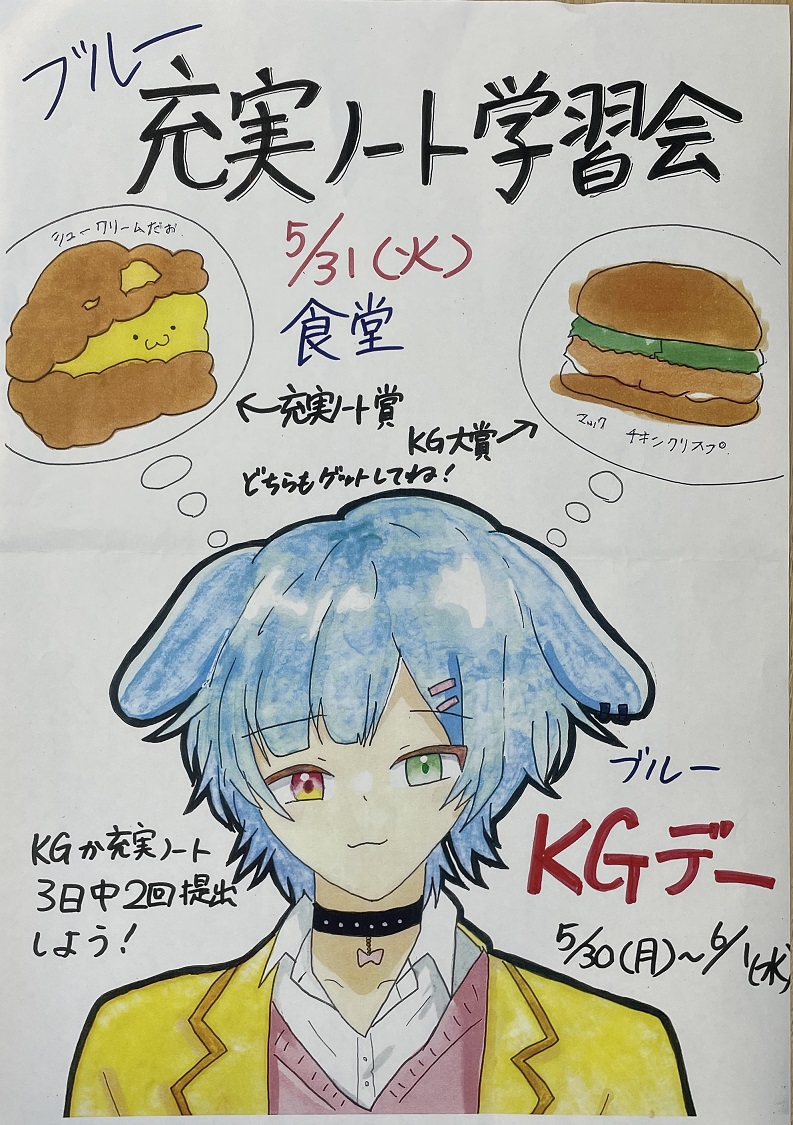 ブルー
充実ノート学習会
シュークリームだお
5/31(火)
食堂
←充実ノート賞
KG大賞→
マック
チキンクリスプ。
どちらもゲットしてね!
ブルー
KGデー
5/30(月)~6/1(水)
KGか充実ノート
3日中2回提出
しよう!